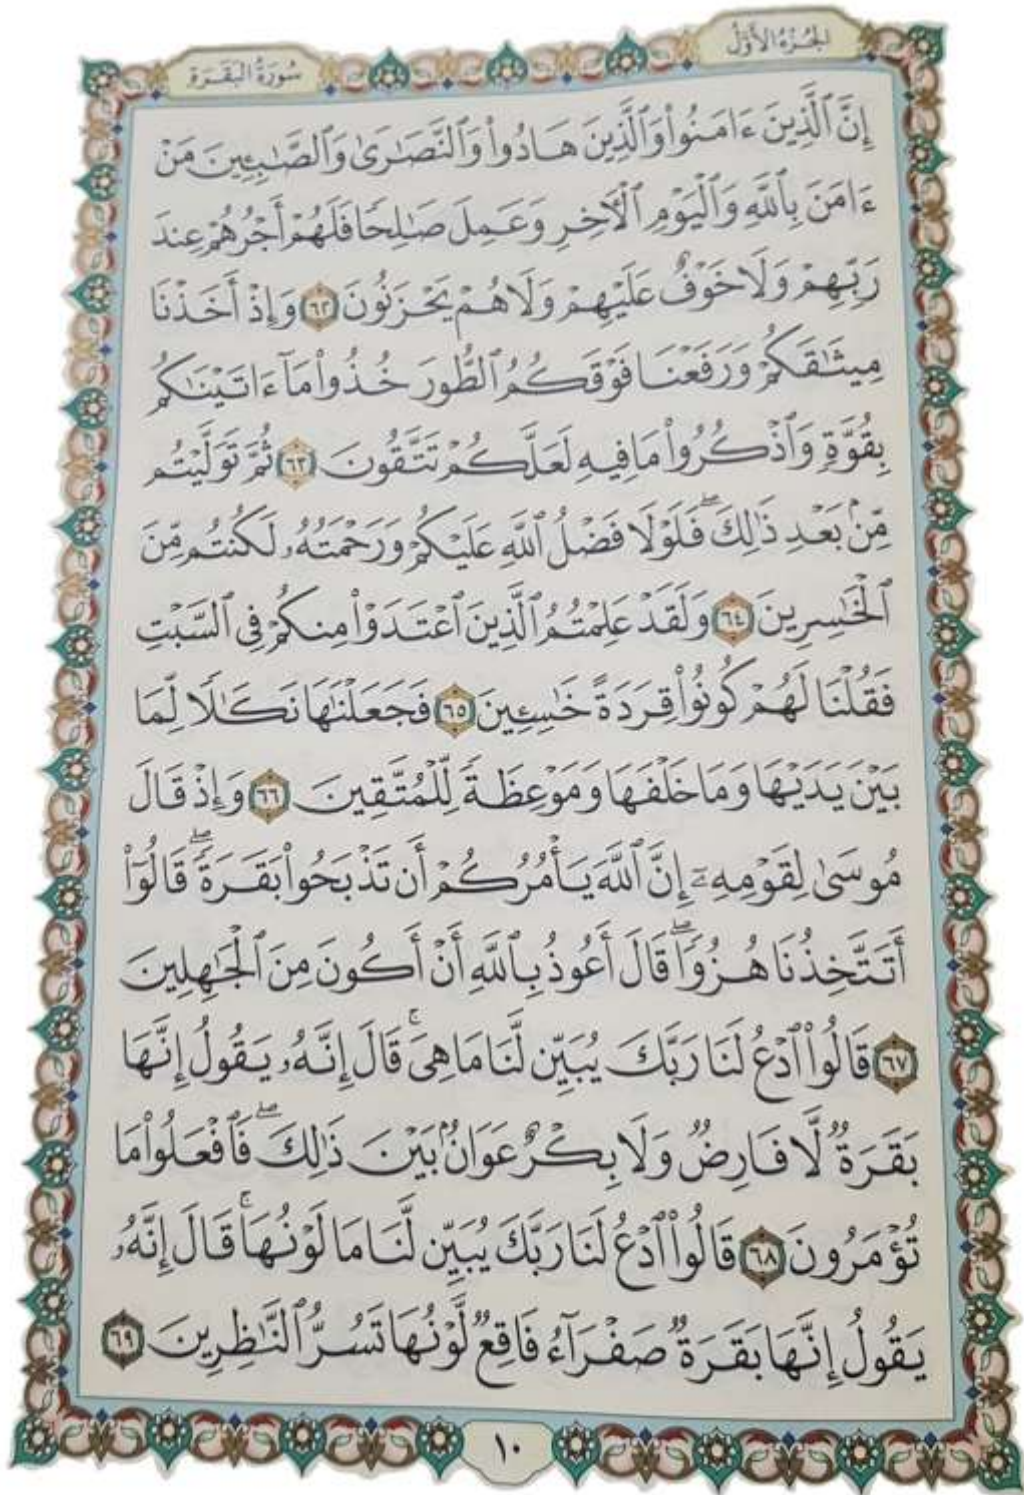 الجُزْءُ الأَوَّلُ
سُورَةُ البَقَرَةِ
إِنَّ ٱلَّذِينَ ءَامَنُوا۟ وَٱلَّذِينَ هَادُوا۟ وَٱلنَّصَٰرَىٰ وَٱلصَّٰبِـِٔينَ مَنْ
ءَامَنَ بِٱللَّهِ وَٱلْيَوْمِ ٱلْءَاخِرِ وَعَمِلَ صَٰلِحًا فَلَهُمْ أَجْرُهُمْ عِندَ
رَبِّهِمْ وَلَا خَوْفٌ عَلَيْهِمْ وَلَا هُمْ يَحْزَنُونَ ٦٢ وَإِذْ أَخَذْنَا
مِيثَٰقَكُمْ وَرَفَعْنَا فَوْقَكُمُ ٱلطُّورَ خُذُوا۟ مَآ ءَاتَيْنَٰكُم
بِقُوَّةٍ وَٱذْكُرُوا۟ مَا فِيهِ لَعَلَّكُمْ تَتَّقُونَ ٦٣ ثُمَّ تَوَلَّيْتُم
مِّنۢ بَعْدِ ذَٰلِكَ ۖ فَلَوْلَا فَضْلُ ٱللَّهِ عَلَيْكُمْ وَرَحْمَتُهُۥ لَكُنتُم مِّنَ
ٱلْخَٰسِرِينَ ٦٤ وَلَقَدْ عَلِمْتُمُ ٱلَّذِينَ ٱعْتَدَوْا۟ مِنكُمْ فِى ٱلسَّبْتِ
فَقُلْنَا لَهُمْ كُونُوا۟ قِرَدَةً خَٰسِـِٔينَ ٦٥ فَجَعَلْنَٰهَا نَكَٰلًا لِّمَا
بَيْنَ يَدَيْهَا وَمَا خَلْفَهَا وَمَوْعِظَةً لِّلْمُتَّقِينَ ٦٦ وَإِذْ قَالَ
مُوسَىٰ لِقَوْمِهِۦٓ إِنَّ ٱللَّهَ يَأْمُرُكُمْ أَن تَذْبَحُوا۟ بَقَرَةً ۖ قَالُوٓا۟
أَتَتَّخِذُنَا هُزُوًا ۖ قَالَ أَعُوذُ بِٱللَّهِ أَنْ أَكُونَ مِنَ ٱلْجَٰهِلِينَ
٦٧ قَالُوا۟ ٱدْعُ لَنَا رَبَّكَ يُبَيِّن لَّنَا مَا هِىَ ۚ قَالَ إِنَّهُۥ يَقُولُ إِنَّهَا
بَقَرَةٌ لَّا فَارِضٌ وَلَا بِكْرٌ عَوَانٌۢ بَيْنَ ذَٰلِكَ ۖ فَٱفْعَلُوا۟ مَا
تُؤْمَرُونَ ٦٨ قَالُوا۟ ٱدْعُ لَنَا رَبَّكَ يُبَيِّن لَّنَا مَا لَوْنُهَا ۚ قَالَ إِنَّهُۥ
يَقُولُ إِنَّهَا بَقَرَةٌ صَفْرَآءُ فَاقِعٌ لَّوْنُهَا تَسُرُّ ٱلنَّٰظِرِينَ ٦٩
١٠